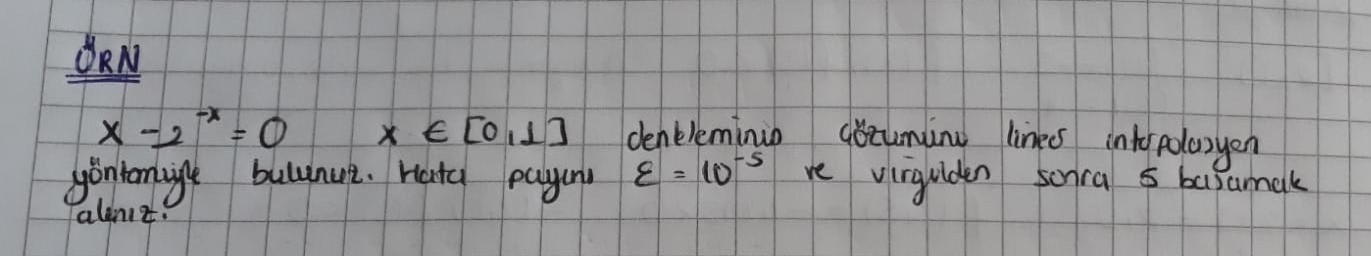 ÖRN
x - 2^-x = 0 x ∈ [0,1] denkleminin çözümünü lineer interpolasyon
yöntemiyle bulunuz. Hata payını ε = 10^-5 ve virgülden sonra 5 basamak
alınız.